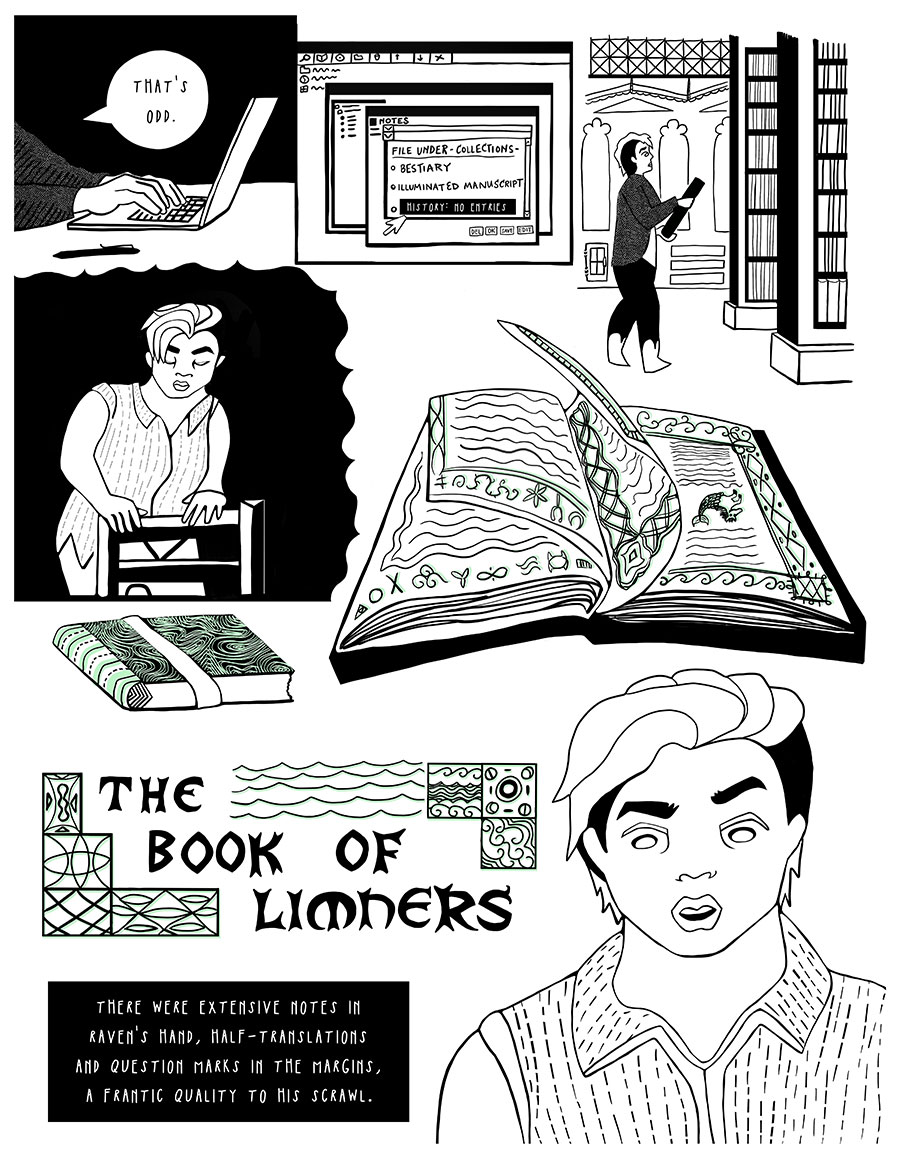 THAT'S
ODD.
NOTES
FILE UNDER-COLLECTIONS-
BESTIARY
ILLUMINATED MANUSCRIPT
HISTORY: NO ENTRIES
DEL OK SAVE EDIT
THE
BOOK OF
LIMNERS
THERE WERE EXTENSIVE NOTES IN
RAVEN'S HAND, HALF-TRANSLATIONS
AND QUESTION MARKS IN THE MARGINS,
A FRANTIC QUALITY TO HIS SCRAWL.